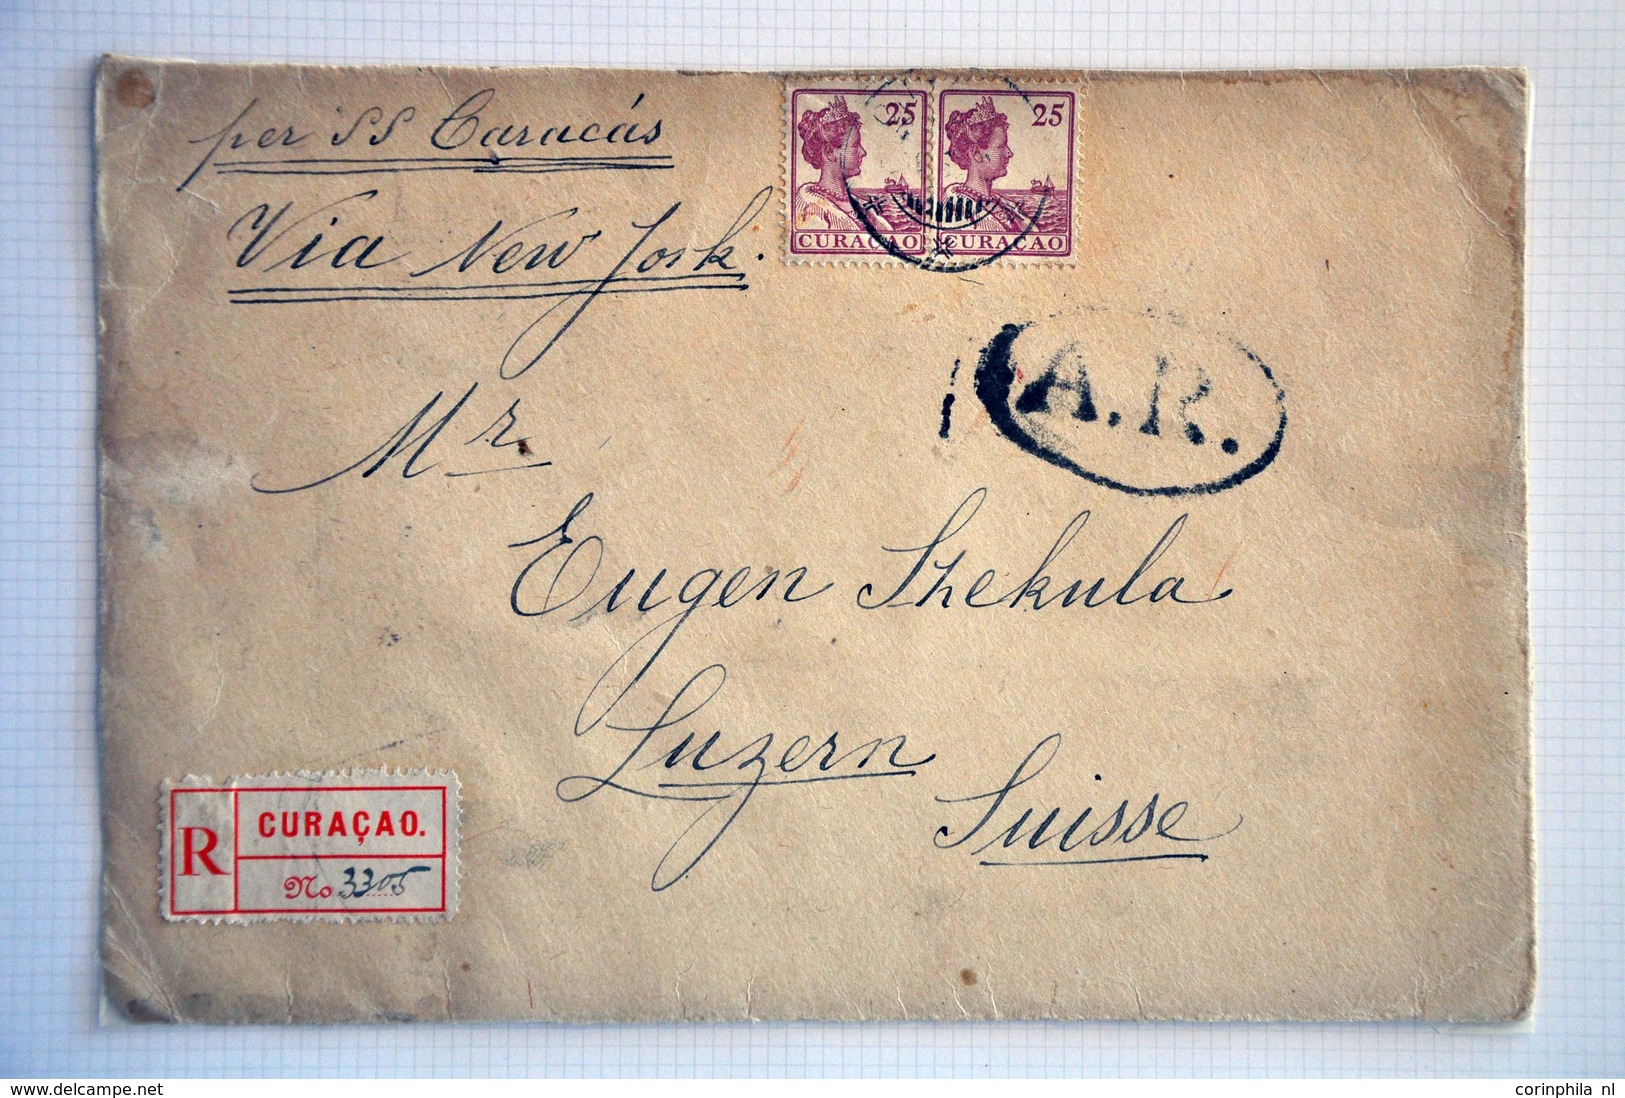 per SS Caracás
Via New York.
25 25
CURAÇAO CURAÇAO
A.R.
Mr.
Eugen Shekula
Luzern
Suisse
R CURAÇAO.
No 3305
delcampe.net
corinphila nl